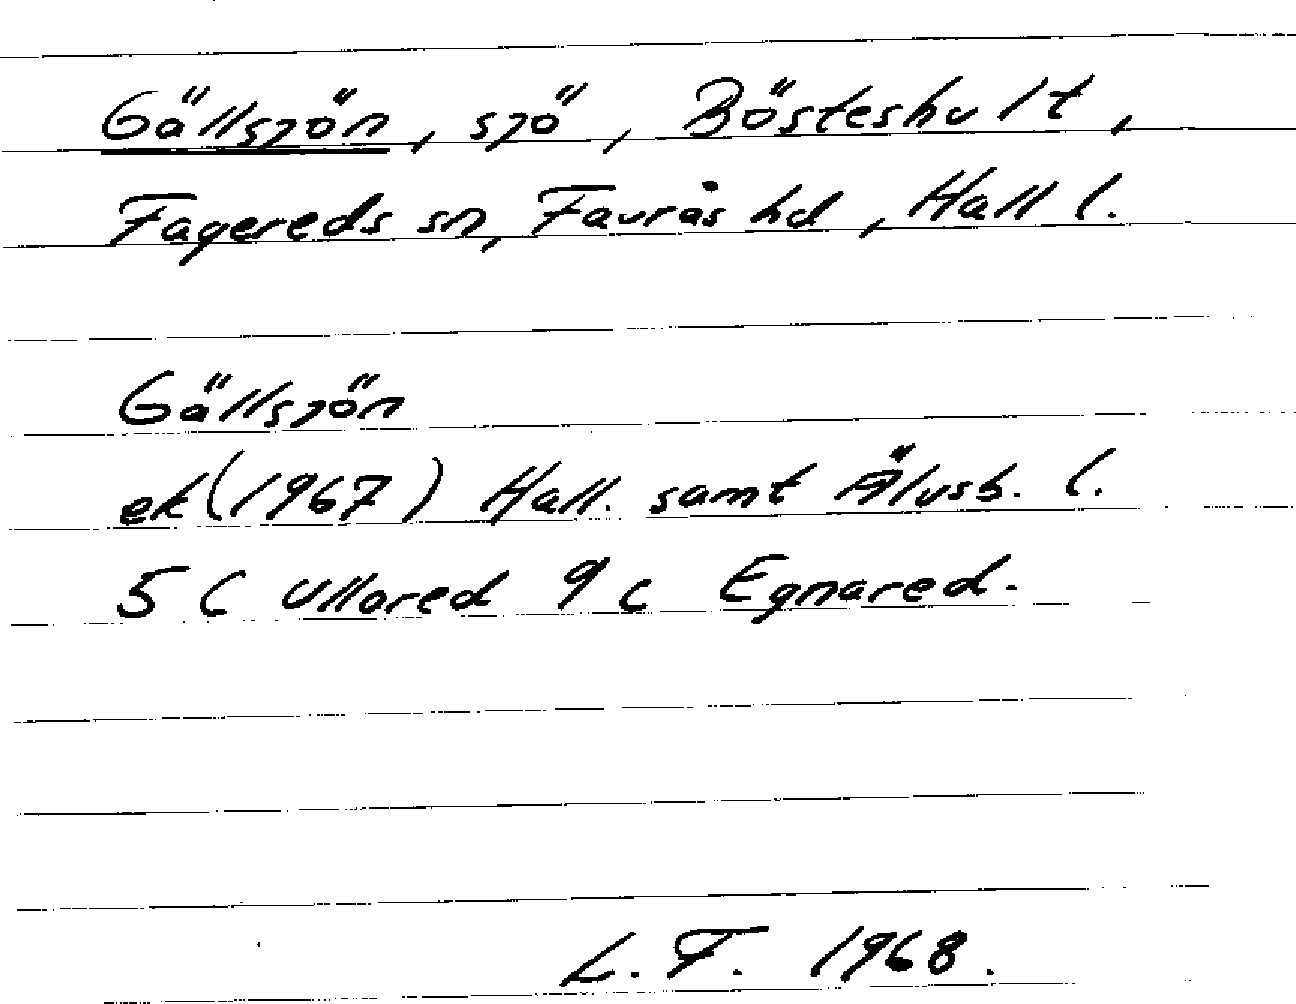 Gällsjön, sjö, Bösteshult,
Fagereds sn, Faurås hd, Hall l.
Gällsjön
ek (1967) Hall. samt Älvsb. l.
5 C Ullared 9 c Egnared.
L. F. 1968.